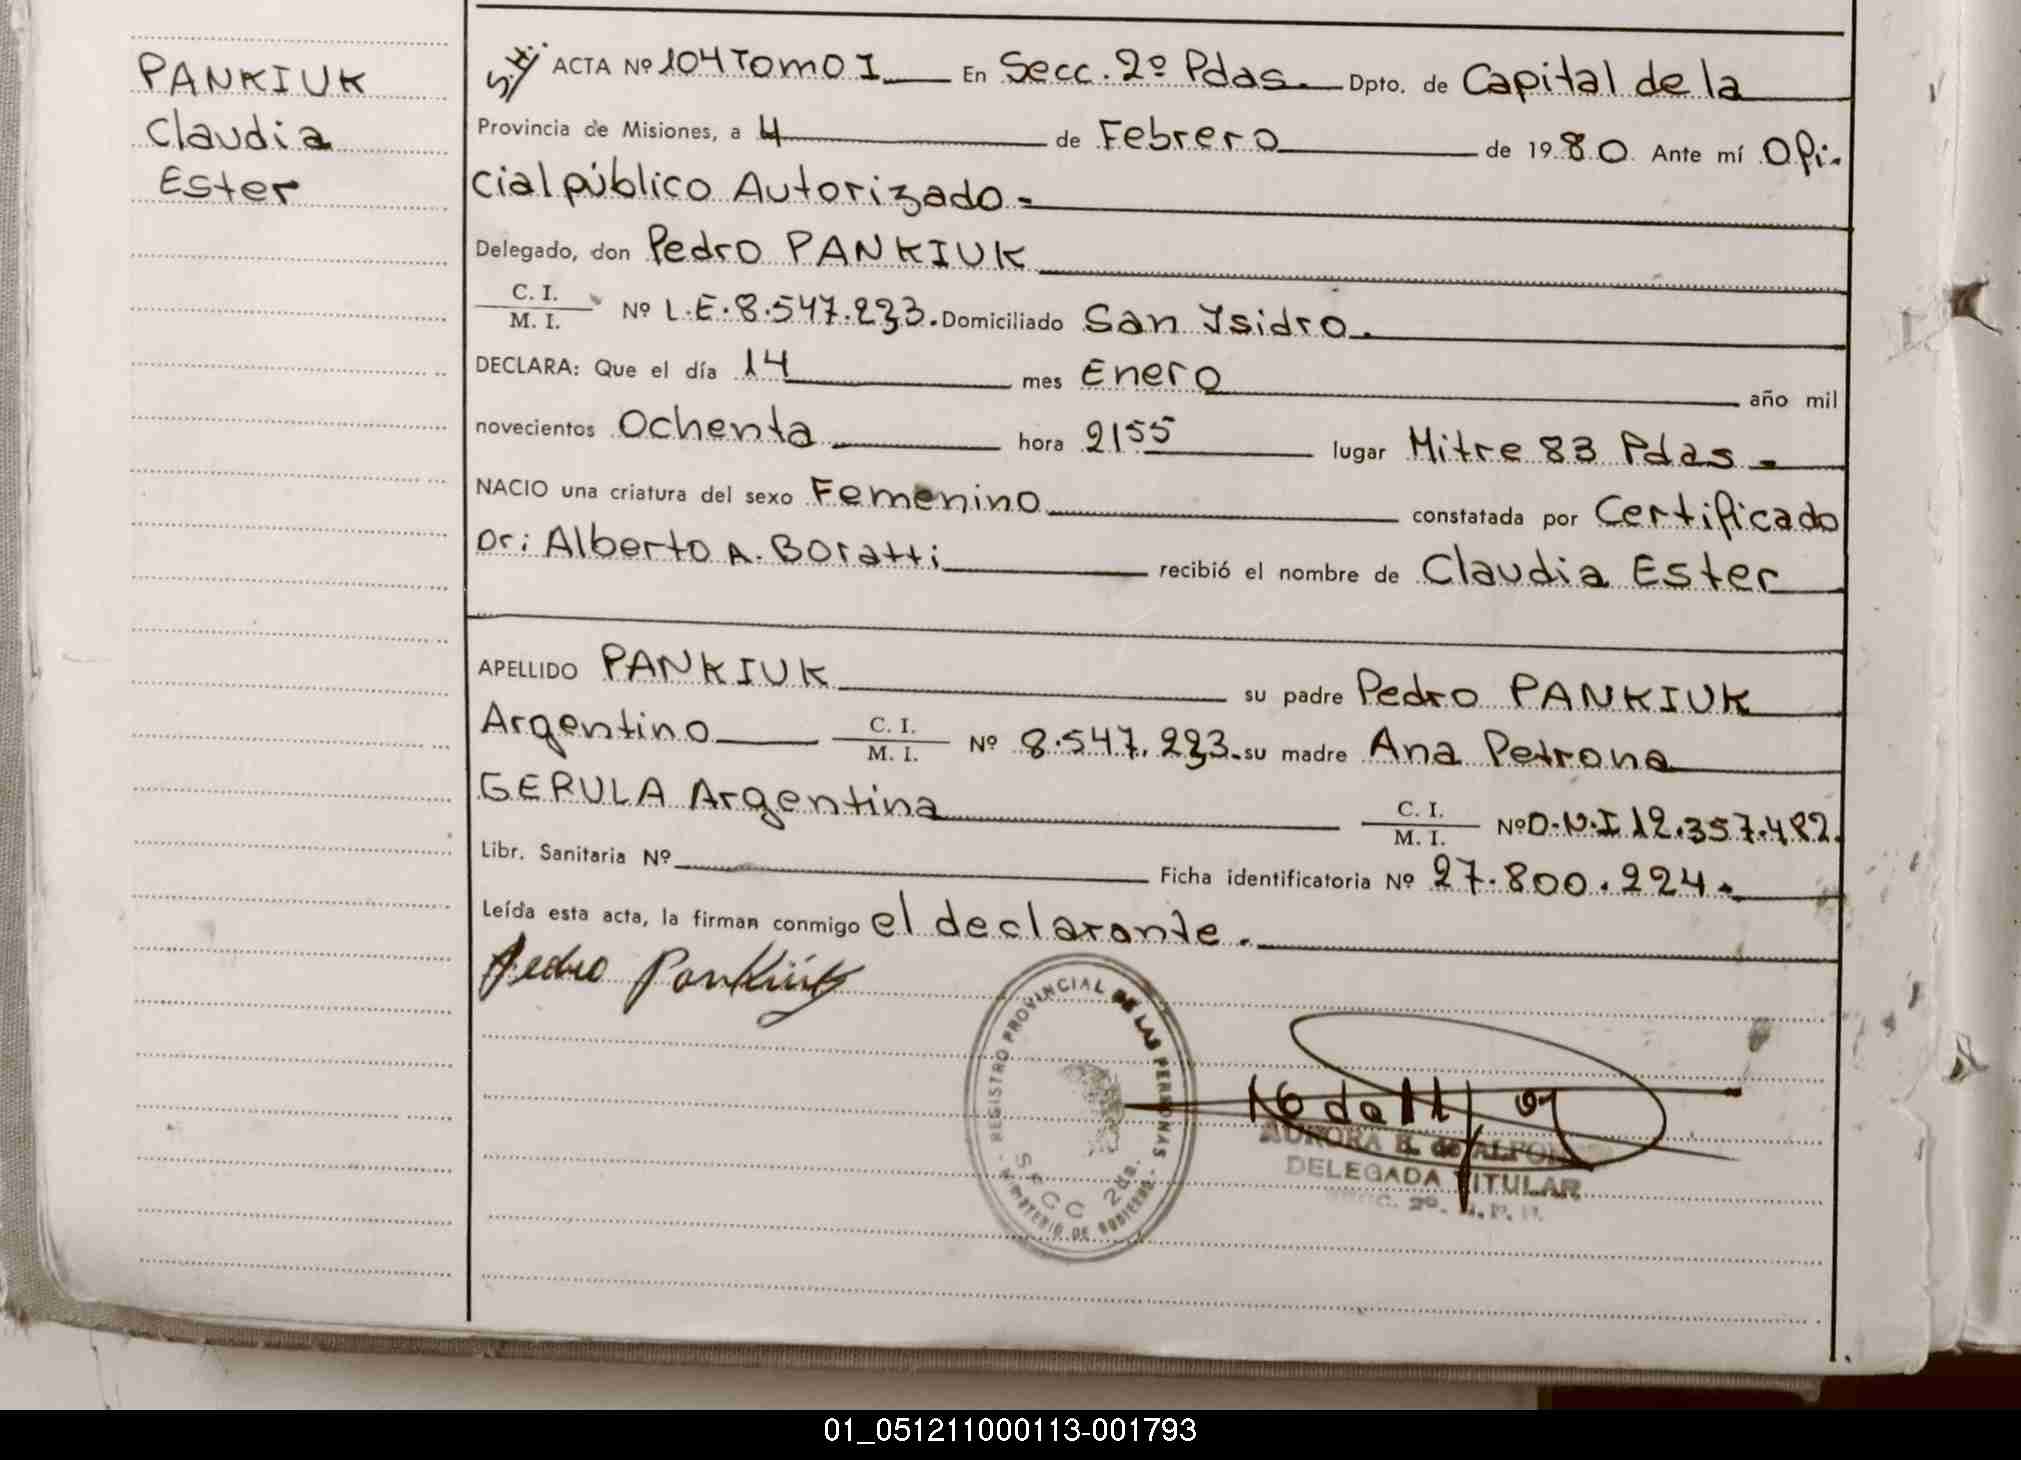 PANKIUK
Claudia
Ester
S.H. ACTA Nº 104 Tomo I En Secc. 2º Pdas. Dpto. de Capital de la
Provincia de Misiones, a 4 de Febrero de 1980 Ante mí Ofi-
cial público Autorizado-
Delegado, don Pedro PANKIUK
C. I.
M. I. Nº L.E.8.547.233. Domiciliado San Ysidro.
DECLARA: Que el día 14 mes Enero año mil
novecientos Ochenta hora 2155 lugar Mitre 83 Pdas-
NACIO una criatura del sexo Femenino constatada por Certificado
Dr: Alberto A. Boratti recibió el nombre de Claudia Ester
APELLIDO PANKIUK su padre Pedro PANKIUK
Argentino C. I. M. I. Nº 8.547.233. su madre Ana Petrona
GERULA Argentina C. I. M. I. Nº D.N.I 12.357.482.
Libr. Sanitaria Nº Ficha identificatoria Nº 27.800.224.
Leída esta acta, la firman conmigo el declarante.
Pedro Pankiuk
REGISTRO PROVINCIAL DE LAS PERSONAS
SECC 2da.
MINISTERIO DE GOBIERNO
AURORA B. de
DELEGADA TITULAR
01_051211000113-001793